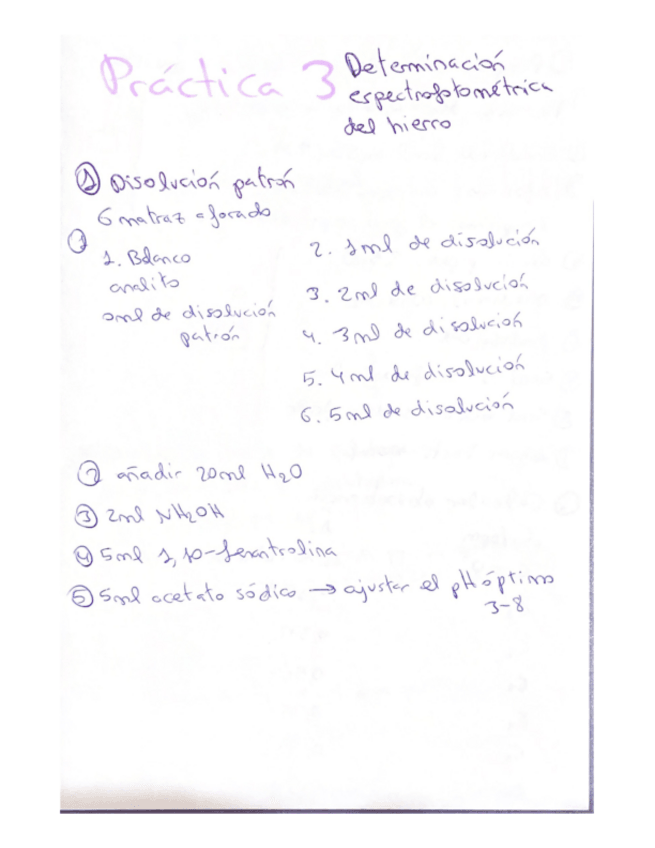 Práctica 3 Determinación
espectrofotométrica
del hierro
① Disolución patrón
6 matraz aforado
①
1. Blanco
analito
0ml de disolución
patrón
2. 1ml de disolución
3. 2ml de disolución
4. 3ml de disolución
5. 4ml de disolución
6. 5ml de disolución
② añadir 20ml H₂O
③ 2ml NH₂OH
④ 5ml 1,10-fenantrolina
⑤ 5ml acetato sódico → ajustar el pH óptimo
3-8